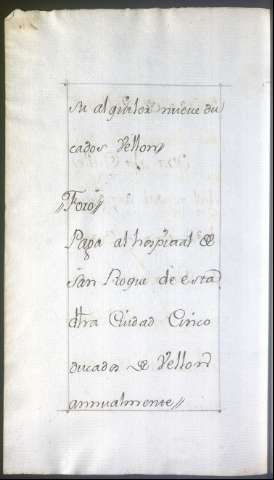 su alquiler nueve du
cados Vellon//
//Foro//
Paga al hospital de
San Roque de esta
dtra Ciudad Cinco
ducados de Vellon
annualmente//